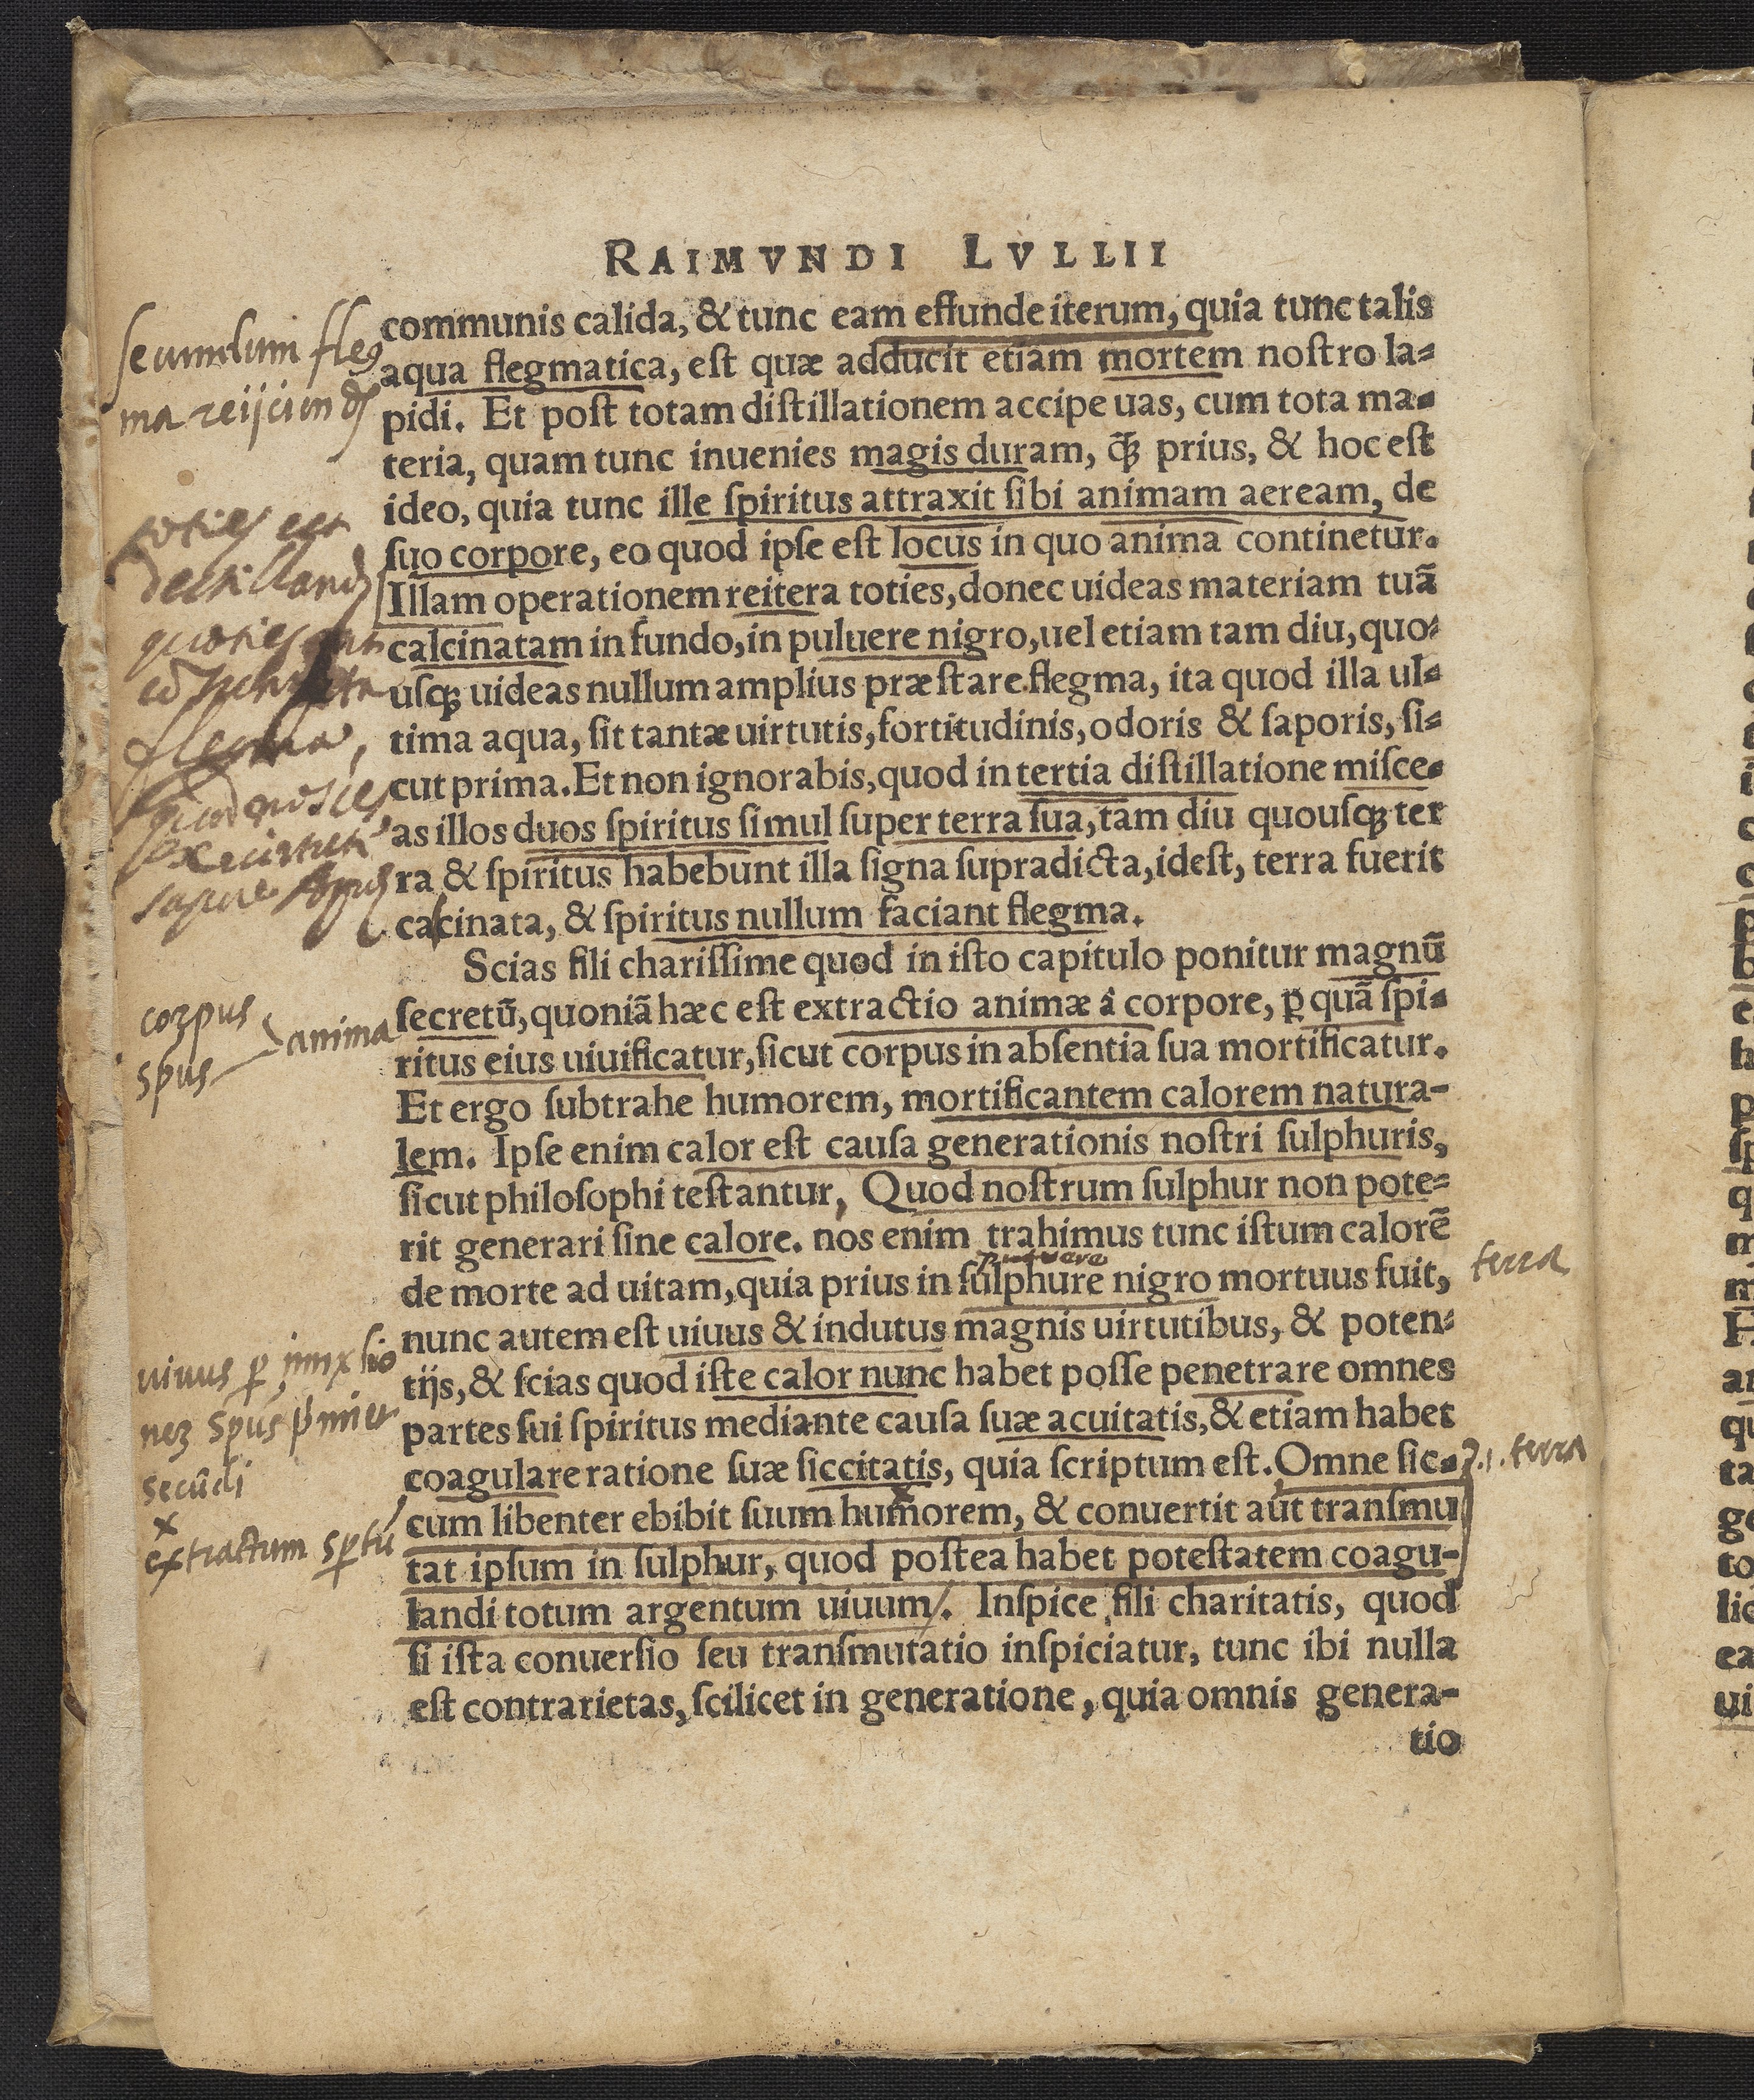 RAIMVNDI LVLLII
communis calida, & tunc eam effunde iterum, quia tunc talis
aqua flegmatica, eſt quæ adducit etiam mortem noſtro la⸗
pidi. Et poſt totam diſtillationem accipe uas, cum tota ma⸗
teria, quam tunc inuenies magis duram, q̃ꝫ prius, & hoc eſt
ideo, quia tunc ille ſpiritus attraxit ſibi animam aeream, de
ſuo corpore, eo quod ipſe eſt locus in quo anima continetur.
Illam operationem reitera toties, donec uideas materiam tuã
calcinatam in fundo, in puluere nigro, uel etiam tam diu, quo⸗
uſqꝫ uideas nullum amplius præſtare flegma, ita quod illa ul⸗
tima aqua, ſit tantæ uirtutis, fortitudinis, odoris & ſaporis, ſi⸗
cut prima. Et non ignorabis, quod in tertia diſtillatione miſce⸗
as illos duos ſpiritus ſimul ſuper terra ſua, tam diu quouſqꝫ ter
ra & ſpiritus habebunt illa ſigna ſupradicta, ideſt, terra fuerit
calcinata, & ſpiritus nullum faciant flegma.
Scias fili chariſſime quod in iſto capitulo ponitur magnũ
ſecretũ, quoniã hæc eſt extractio animæ â corpore, ꝑ quã ſpi⸗
ritus eius uiuificatur, ſicut corpus in abſentia ſua mortificatur.
Et ergo ſubtrahe humorem, mortificantem calorem natura-
lem. Ipſe enim calor eſt cauſa generationis noſtri ſulphuris,
ſicut philoſophi teſtantur, Quod noſtrum ſulphur non pote⸗
rit generari ſine calore. nos enim trahimus tunc iſtum calorẽ
de morte ad uitam, quia prius in ſulphure nigro mortuus fuit,
nunc autem eſt uiuus & indutus magnis uirtutibus, & poten⸗
tijs, & ſcias quod iſte calor nunc habet poſſe penetrare omnes
partes ſui ſpiritus mediante cauſa ſuæ acuitatis, & etiam habet
coagulare ratione ſuæ ſiccitatis, quia ſcriptum eſt. Omne ſic⸗
cum libenter ebibit ſuum humorem, & conuertit aut tranſmu
tat ipſum in ſulphur, quod poſtea habet poteſtatem coagu-
landi totum argentum uiuum. Inſpice fili charitatis, quod
ſi iſta conuerſio ſeu tranſmutatio inſpiciatur, tunc ibi nulla
eſt contrarietas, ſcilicet in generatione, quia omnis genera-
tio
flegma,
corpus
spus
anima
puluere
terra
secũdi
extractum
terra